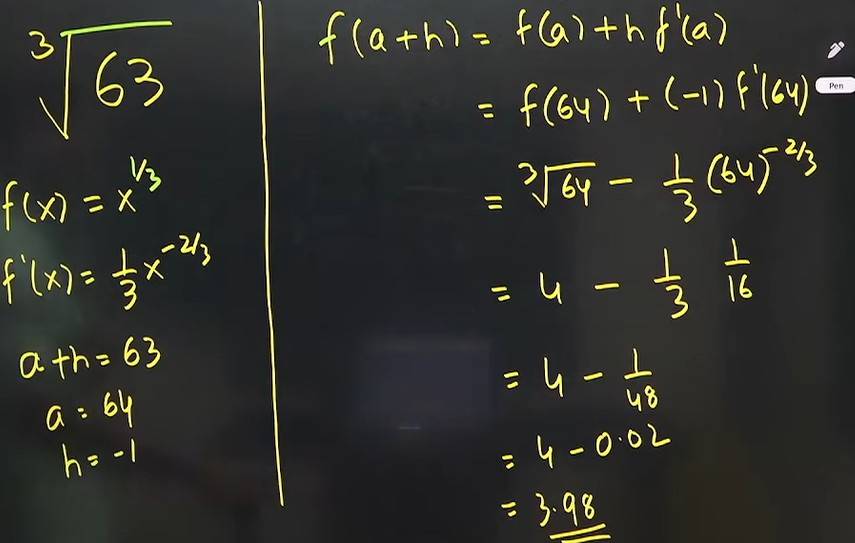 ∛63
f(x) = x^(1/3)
f'(x) = 1/3 x^(-2/3)
a+h = 63
a = 64
h = -1
f(a+h) = f(a) + h f'(a)
= f(64) + (-1) f'(64)
= ∛64 - 1/3 (64)^(-2/3)
= 4 - 1/3 1/16
= 4 - 1/48
= 4 - 0.02
= 3.98
Pen